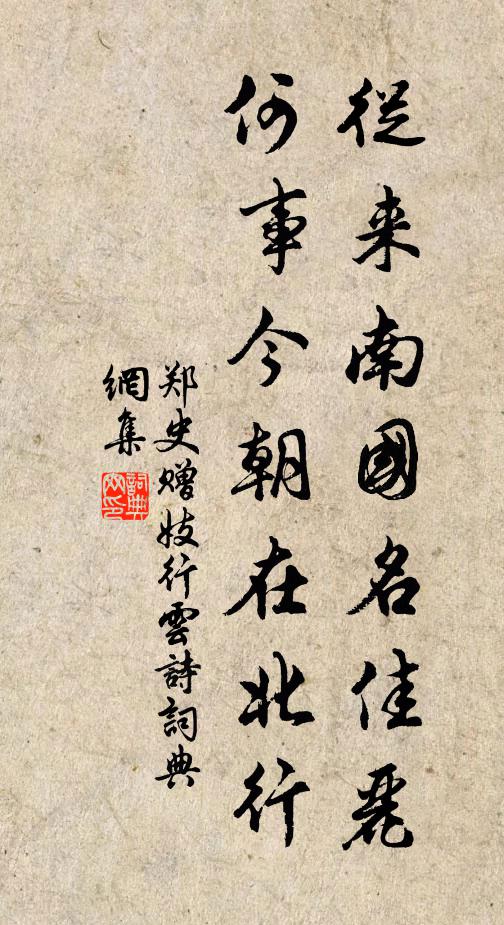 從来南國名佳麗
何事今朝在北行
郑史赠妓行雲詩詞典
網集
詞典網印